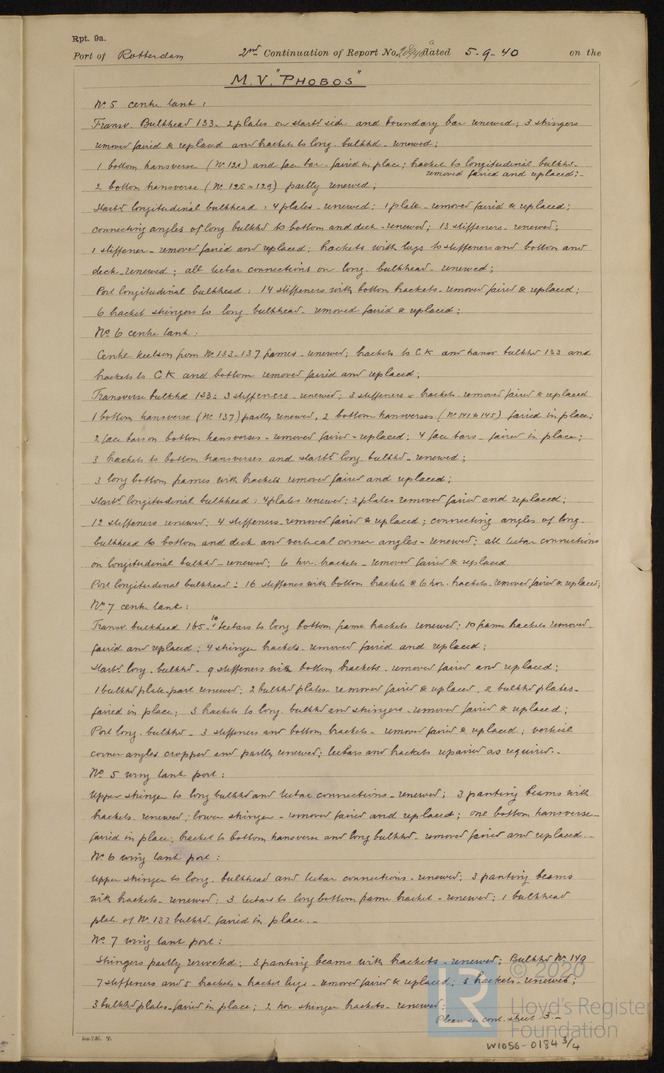 Rpt. 9a.
Port of Rotterdam 2nd Continuation of Report No. dated 5-9-40 on the
M.V. "PHOBOS"
No. 5 centre tank:
Transv. Bulkhead 133 - 2 plates on starbd side and boundary bar renewed; 3 stringers
removed faired & replaced and brackets to long. bulkhd - renewed;
1 bottom transverse (No. 121) and face bar - faired in place; bracket to longitudinal bulkhd -
removed faired and replaced;-
2 bottom transverse (No. 125 - 129) partly renewed;
Starbd longitudinal bulkhead: 4 plates - renewed; 1 plate - removed faired & replaced;
connecting angles of long bulkhd to bottom and deck - renewed; 13 stiffeners - renewed;
1 stiffener - removed faired and replaced; brackets with lugs to stiffeners and bottom and
deck - renewed; all connections on long. bulkhead - renewed;
Port longitudinal bulkhead: 14 stiffeners with bottom brackets - removed faired & replaced;
6 bracket stringers to long. bulkhead - removed faired & replaced;
No. 6 centre tank:
Centre keelson from No. 133-137 frames - renewed; brackets to C K and transv bulkhd 133 and
brackets to C K and bottom removed faired and replaced;
Transverse bulkhd 3 stiffeners - renewed; 3 stiffeners & brackets - removed faired & replaced
1 bottom transverse (No. 137) partly renewed, 2 bottom transverses (No. 141 & 145) faired in place;
2 face bars on bottom transverses - removed faired - replaced; 4 face bars - faired in place;
3 brackets to bottom transverses and starbd long bulkhd - renewed;
3 long bottom frames with brackets removed faired and replaced;
Starbd longitudinal bulkhead: 4 plates renewed; 2 plates removed faired and replaced;
12 stiffeners renewed; 4 stiffeners - removed faired & replaced; connecting angles of long.
bulkhead to bottom and deck and vertical corner angles - renewed; all connections
on longitudinal bulkhd - renewed; 6 hor. brackets - removed faired & replaced
Port longitudinal bulkhead: 16 stiffeners with bottom brackets & 6 hor. brackets - removed faired & replaced;
No. 7 centre tank:
Transv. bulkhead 165 - 10 to long bottom frame brackets renewed; 10 frame brackets removed -
faired and replaced; 4 stringer brackets - removed faired and replaced;
Starbd long - bulkhd - 9 stiffeners with bottom brackets - removed faired and replaced;
1 bulkhd plate - part renewed; 2 bulkhd plates - removed faired & replaced, 2 bulkhd plates -
faired in place; 3 brackets to long. bulkhd and stringers - removed faired & replaced;
Port long - bulkhd - 3 stiffeners and bottom brackets - removed faired & replaced; vertical
corner angles cropped and partly renewed; and brackets repaired as required.-
No. 5 wing tank port:
Upper stringer to long bulkhd and connections - renewed; 3 panting beams with
brackets - renewed; lower stringer - removed faired and replaced; one bottom transverse -
faired in place; bracket to bottom transverse and long bulkhd - removed faired and replaced.-
No. 6 wing tank port:
Upper stringer to long. bulkhead and connections - renewed; 3 panting beams
with brackets - renewed; 3 to long bottom frame bracket - renewed; 1 bulkhead
plate of No. 133 bulkhd. faired in place.-
No. 7 wing tank port:
Stringers partly riveted; 3 panting beams with brackets - renewed; Bulkhd No. 149
7 stiffeners and 5 brackets - bracket lugs - removed faired & replaced; 5 brackets - renewed;
3 bulkhd plates - faired in place; 2 hor stringer brackets - renewed;
Please see cont. sheet 3.-
© 2020
Lloyd's Register
Foundation
W1056-0184 3/4